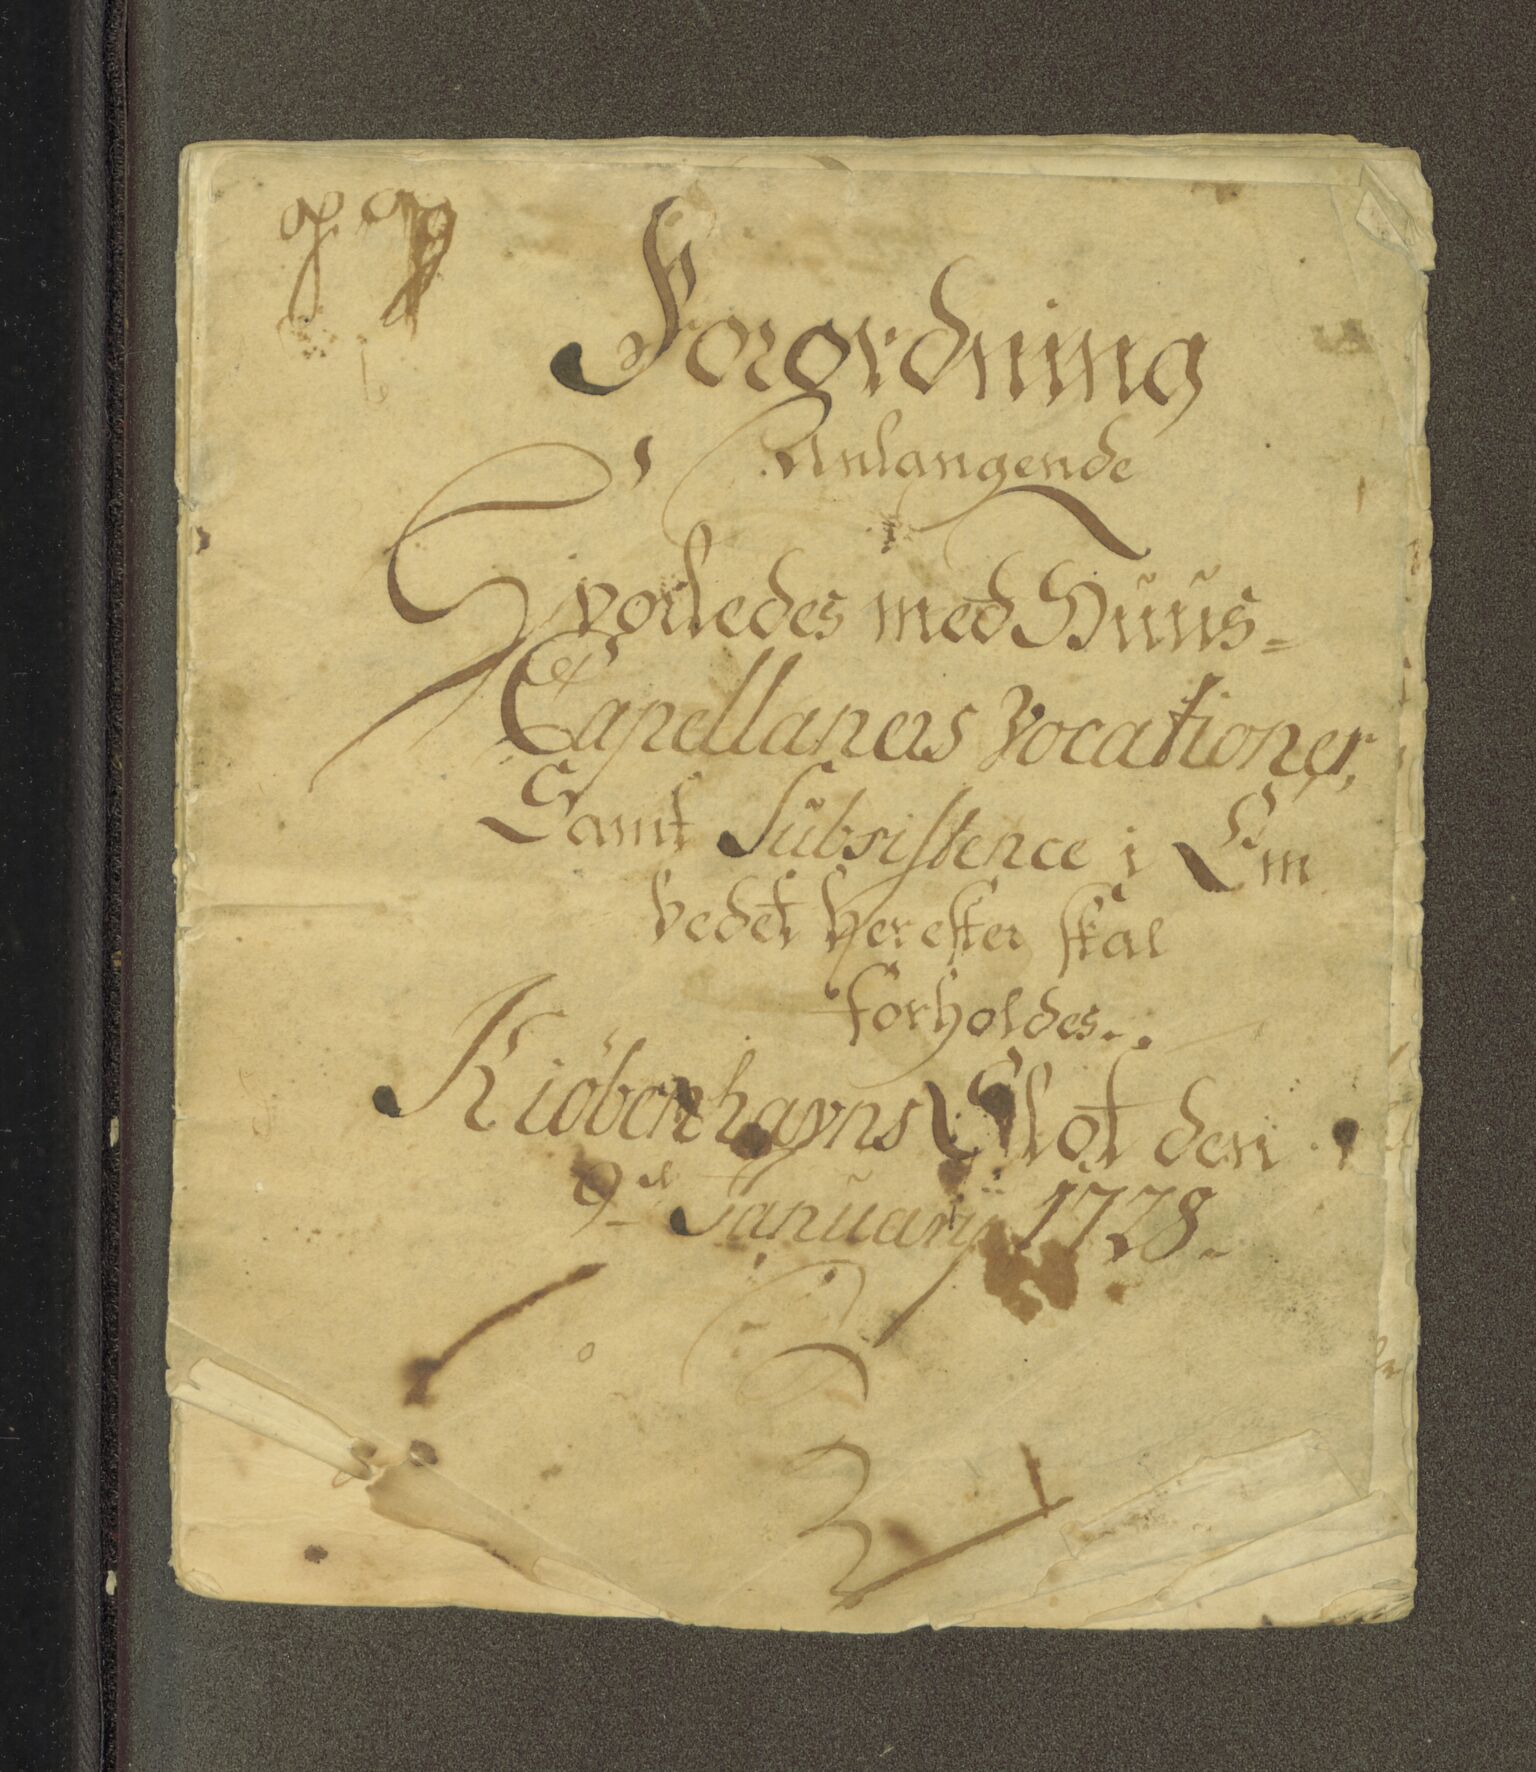 Forordning
Anlangende
Hvorledes med Huus-
Capellaners Vocationer,
Samt Subsistence i Em
bedet herefter skal
forholdes..
Kiöbenhavns Slot den
9d January 1728.